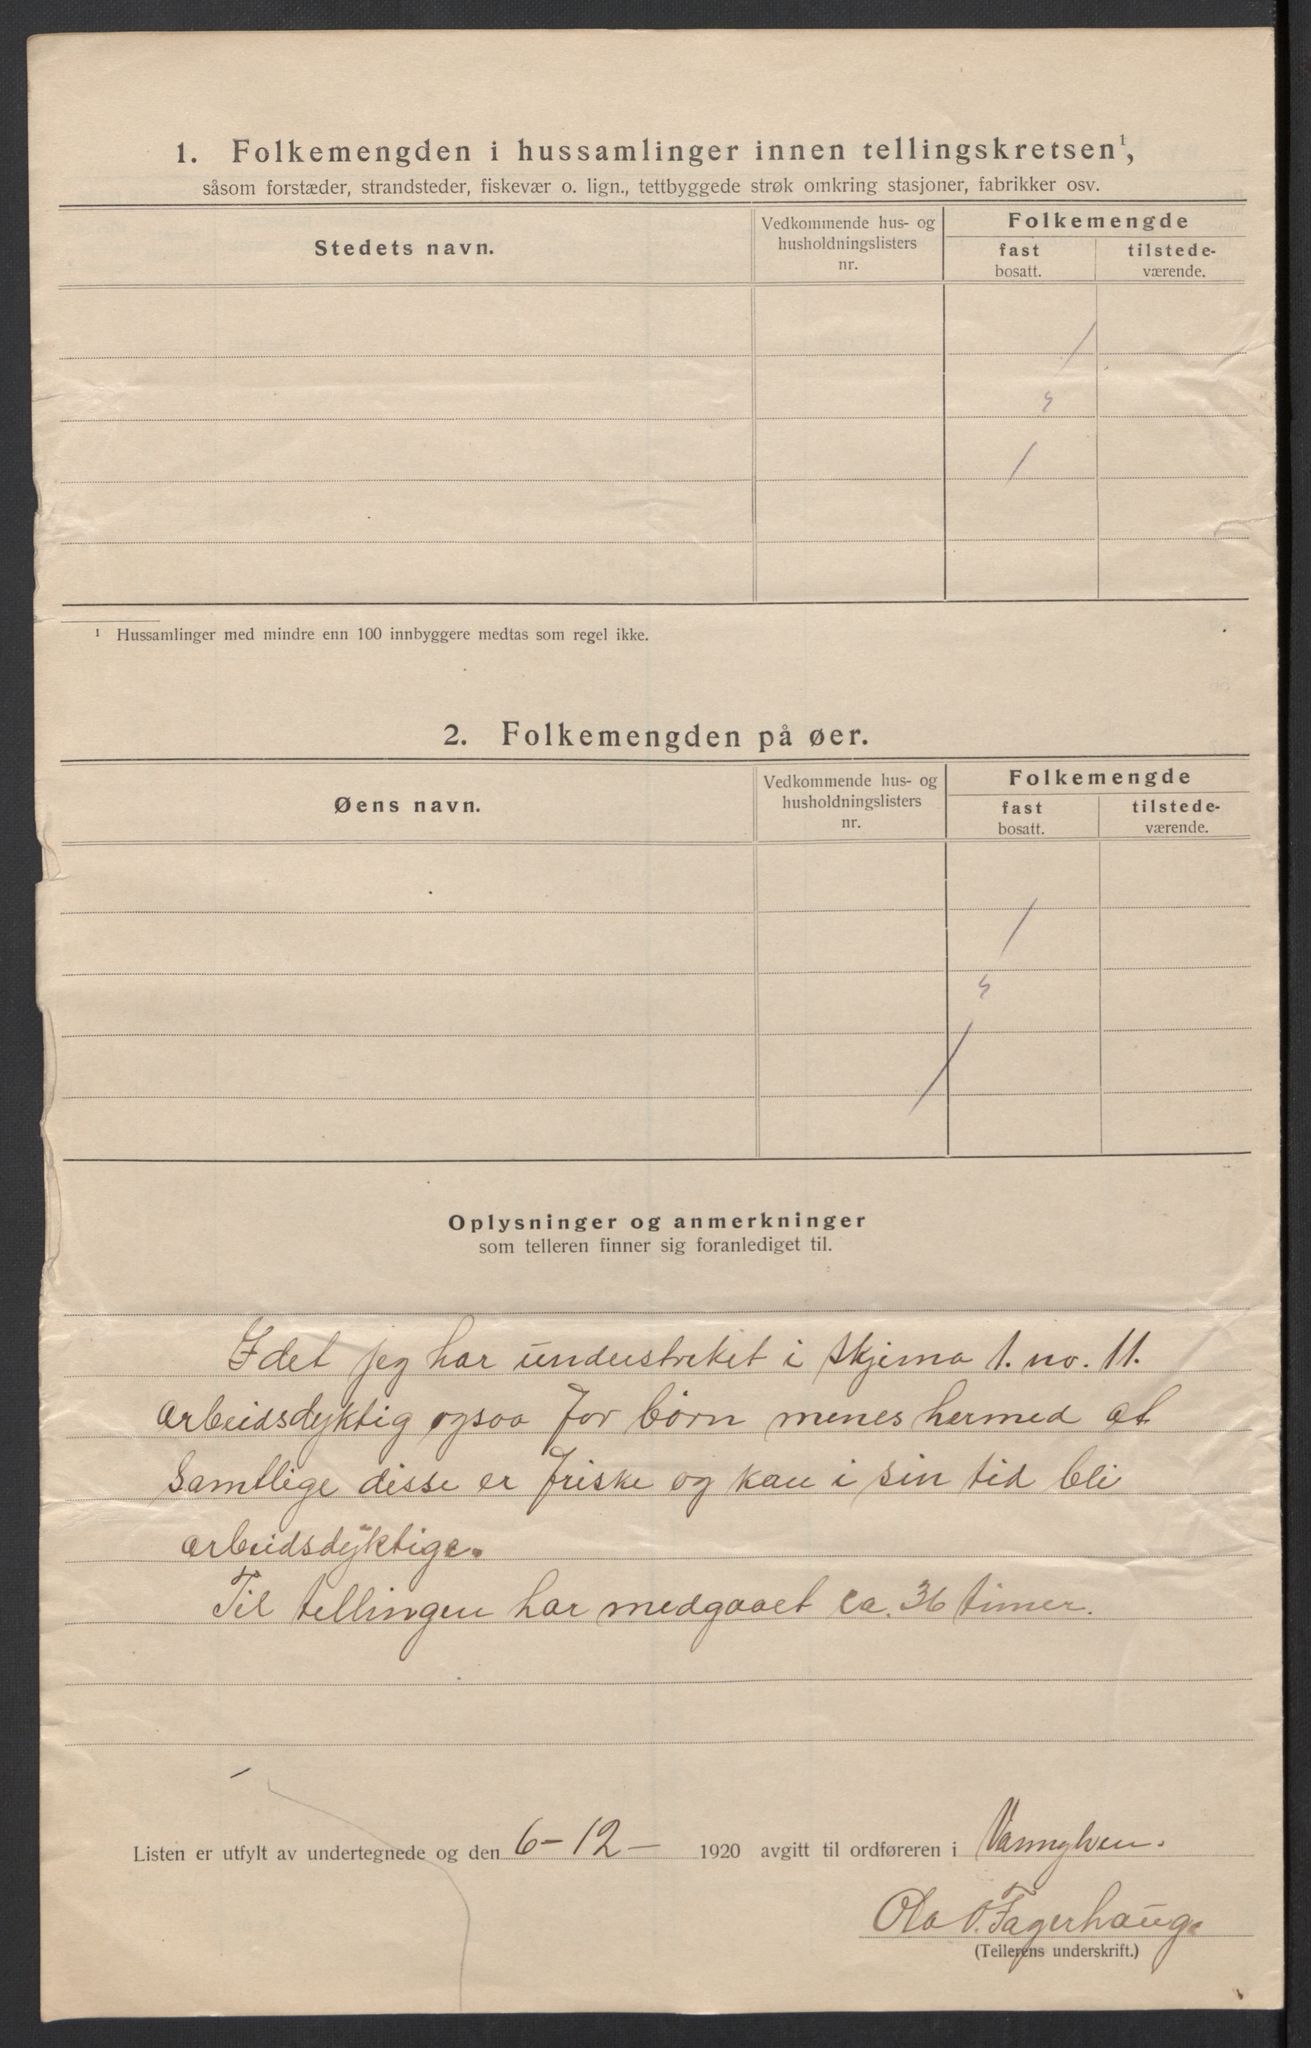 1. Folkemengden i hussamlinger innen tellingskretsen¹,
såsom forstæder, strandsteder, fiskevær o. lign., tettbyggede strøk omkring stasjoner, fabrikker osv.
Stedets navn.
Vedkommende hus- og
husholdningslisters
nr.
Folkemengde
fast
bosatt.
tilstede-
værende.
¹ Hussamlinger med mindre enn 100 innbyggere medtas som regel ikke.
2. Folkemengden på øer.
Øens navn.
Vedkommende hus- og
husholdningslisters
nr.
Folkemengde
fast
bosatt.
tilstede-
værende.
Oplysninger og anmerkninger
som telleren finner sig foranlediget til.
Idet jeg har understreket i skjema 1. no. 11.
arbeidsdyktig ogsaa for børn menes hermed at
samtlige disse er friske og kan i sin tid bli
arbeidsdyktige.
Til tellingen har medgaaet ca. 36 timer.
Listen er utfylt av undertegnede og den 6-12- 1920 avgitt til ordføreren i Vannylven.
Ola O. Fagerhaug.
(Tellerens underskrift.)